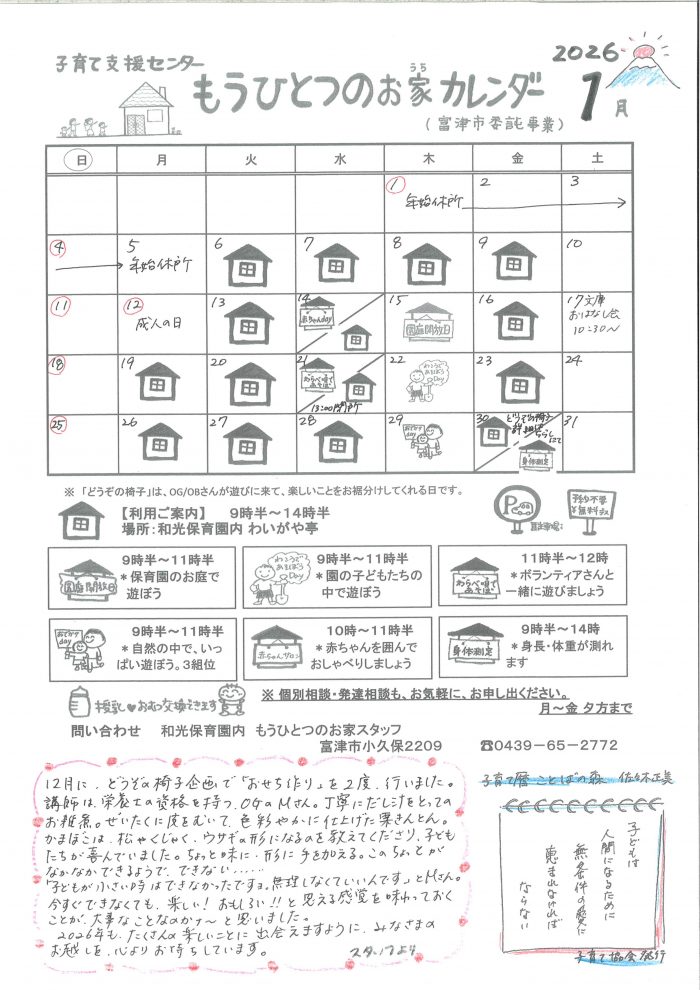 子育て支援センター
もうひとつのお家カレンダー
うち
(富津市委託事業)
2026
1月
日 月 火 水 木 金 土
1 2 3
年始休所
4 5 6 7 8 9 10
年始休所
11 12 13 14 15 16 17
成人の日
赤ちゃんday
園庭開放日
文庫
おはなし会
10:30〜
18 19 20 21 22 23 24
わらべ唄であそぼ
13:00閉所
わこうであそぼうDay
25 26 27 28 29 30 31
おでかけday
どうぞの椅子
詳細は
ちらしにて
身体測定
※ 「どうぞの椅子」は、OG/OBさんが遊びに来て、楽しいことをお裾分けしてくれる日です。
【利用ご案内】 9時半〜14時半
場所:和光保育園内 わいがや亭
P
予約不要
¥無料です
園庭開放日
9時半〜11時半
*保育園のお庭で
遊ぼう
わこうであそぼうDay
9時半〜11時半
*園の子どもたちの
中で遊ぼう
わらべ唄であそぼ
11時半〜12時
*ボランティアさんと
一緒に遊びましょう
おでかけday
9時半〜11時半
*自然の中で、いっ
ぱい遊ぼう。3組位
赤ちゃんサロン
10時〜11時半
*赤ちゃんを囲んで
おしゃべりしましょう
身体測定
9時半〜14時
*身長・体重が測れ
ます
授乳♥おむつ交換できます
※ 個別相談・発達相談も、お気軽に、お申し出ください。
月〜金 夕方まで
問い合わせ 和光保育園内 もうひとつのお家スタッフ
富津市小久保2209 ☎0439-65-2772
12月に、どうぞの椅子企画で「おせち作り」を2度、行いました。
講師は、栄養士の資格を持つ、OGのMさん。丁寧にだしけをとっての
お雑煮。ぜいたくに皮をむいて、色彩やかに仕上げた栗きんとん。
かまぼこは、松やくじゃく、ウサギの形になるのを教えてくださり、子ども
たちが喜んでいました。ちょっと味に、形に手を加える。このちょっとが
なかなかできるようで、できない……
「子どもが小さい時はできなかったですョ。無理しなくていいんです」とMさん。
今すぐできなくても、楽しい!おもしろい!!と思える感覚を味わっておく
ことが、大事なことなのかナ〜と思いました。
2026年も、たくさんの楽しいことに出会えますように、みなさまの
お越しを、心よりお待ちしています。
スタッフより
子育て暦 ことばの森 佐々木正美
子どもは
人間になるために
無条件の愛に
恵まれなければ
ならない
子育て協会発行